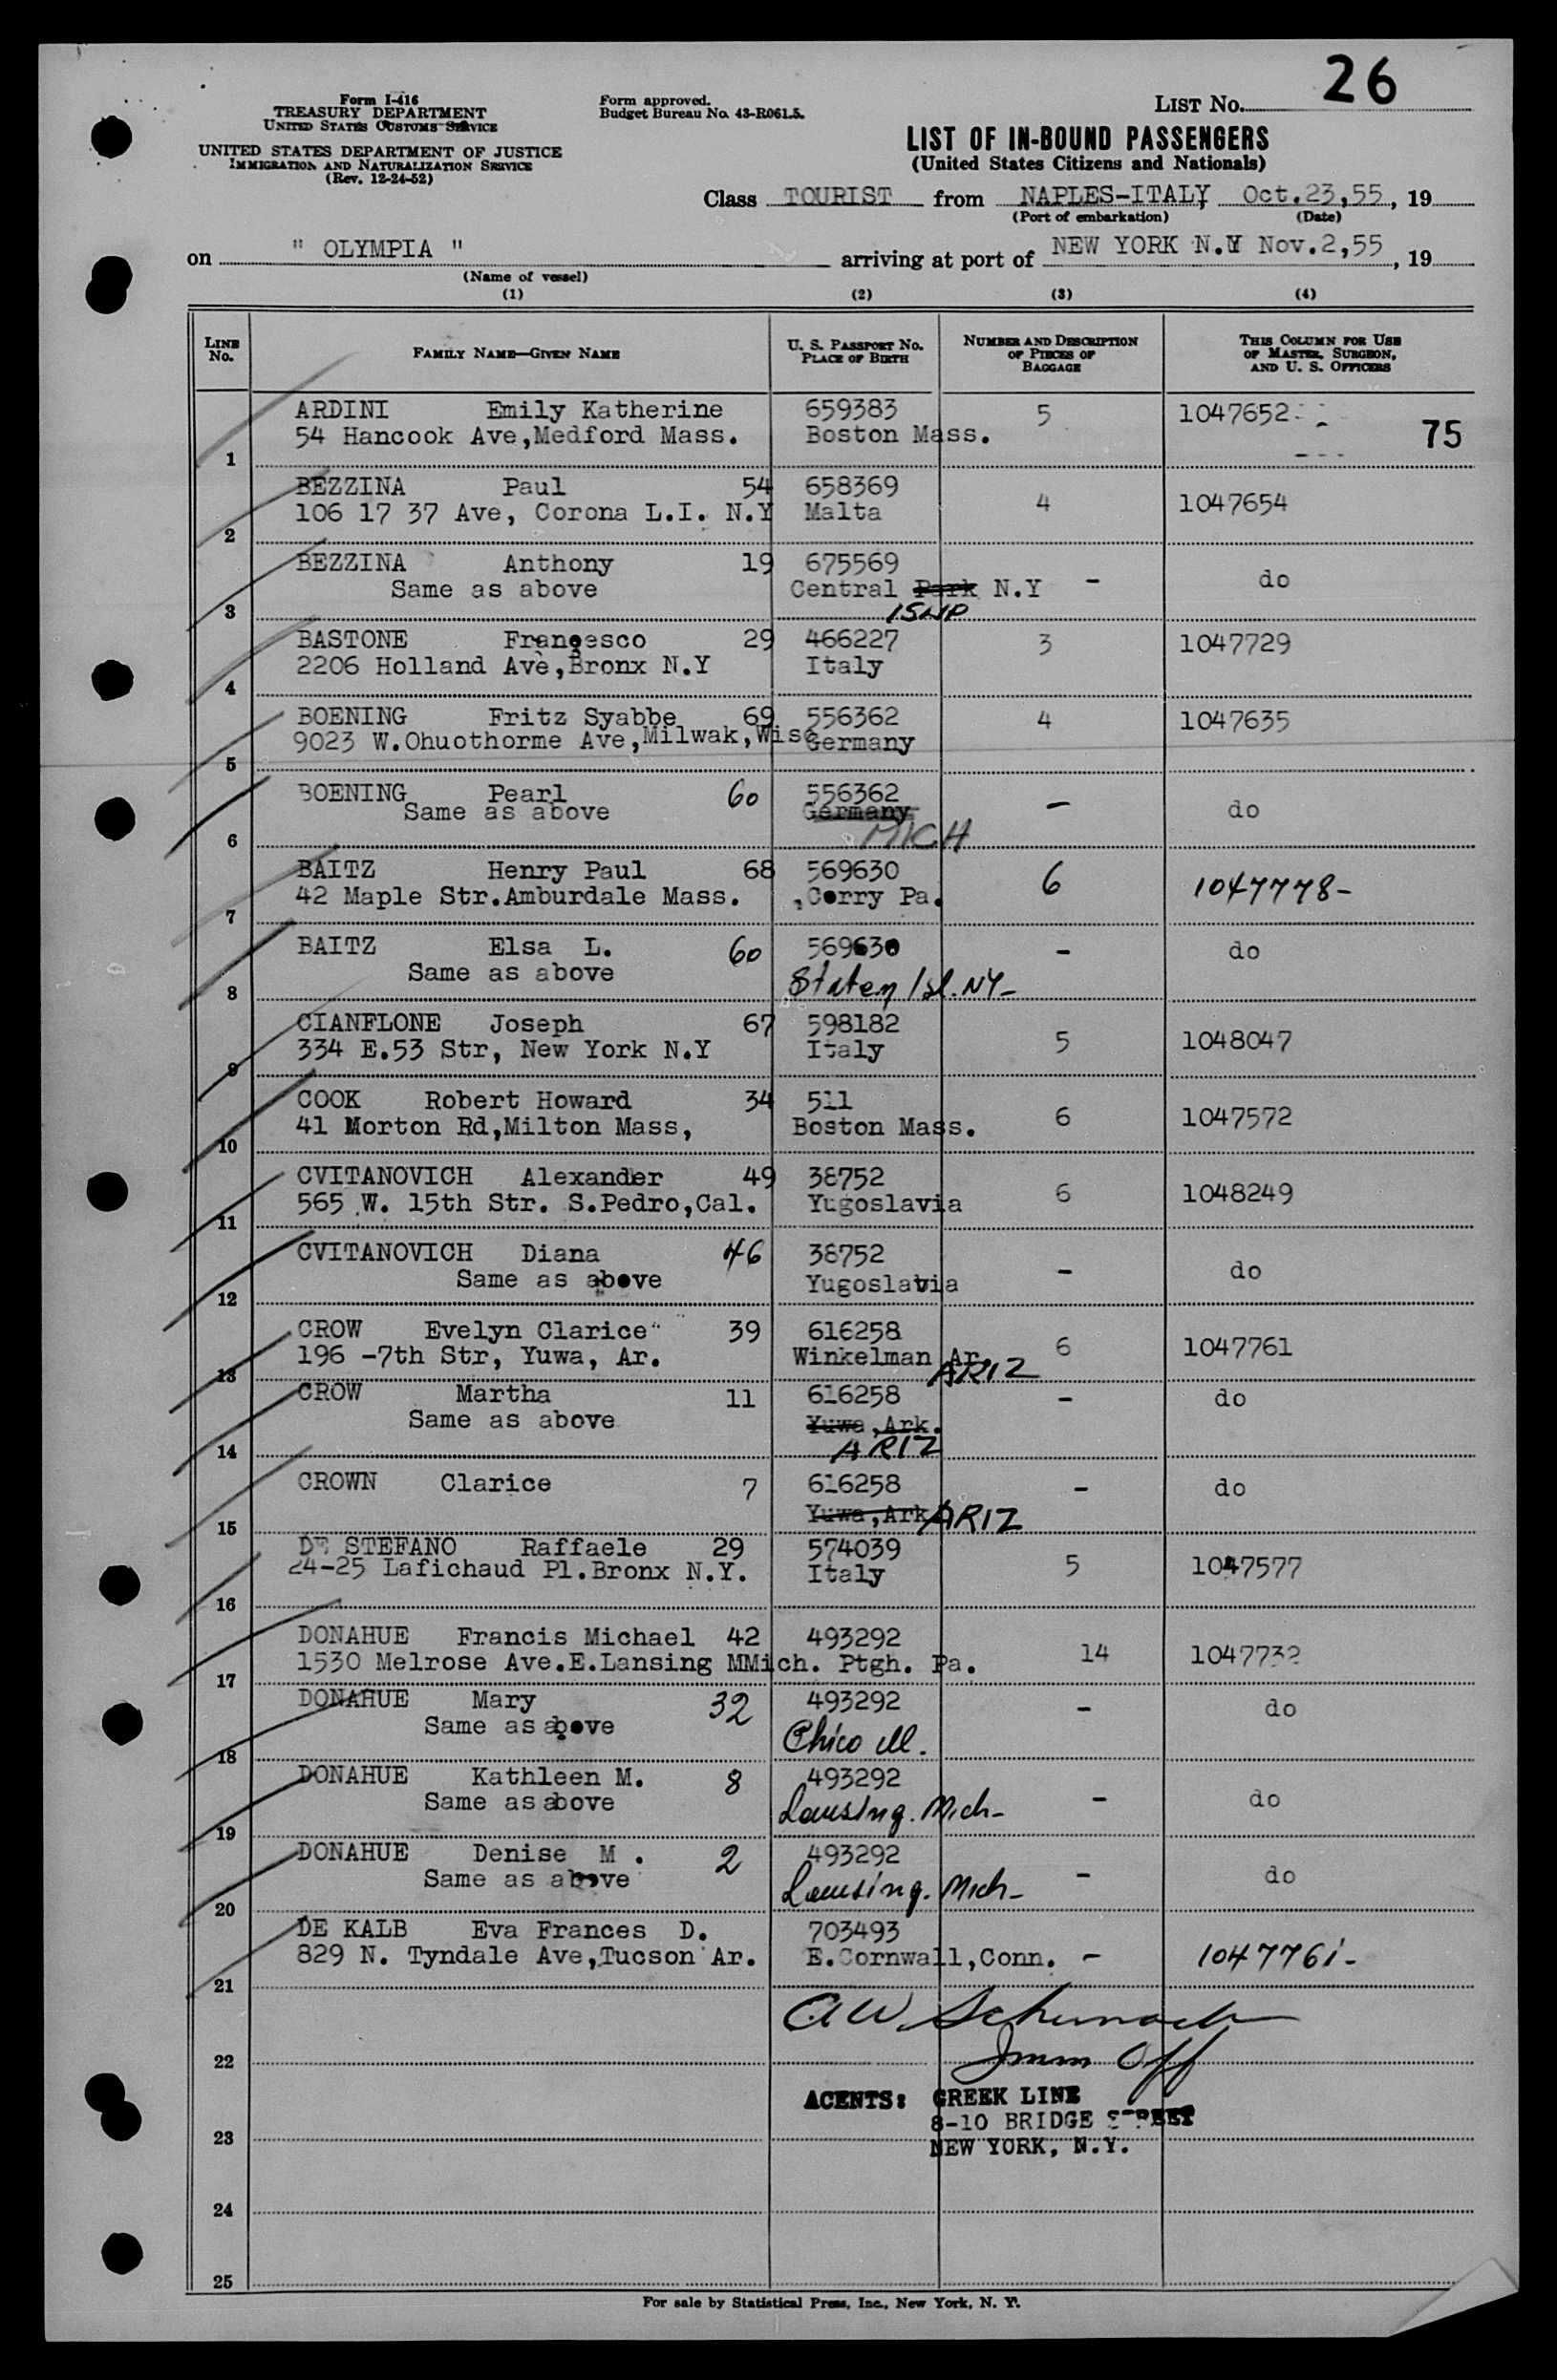 26
Form I-416
TREASURY DEPARTMENT
UNITED STATES CUSTOMS SERVICE
UNITED STATES DEPARTMENT OF JUSTICE
IMMIGRATION AND NATURALIZATION SERVICE
(Rev. 12-24-52)
Form approved.
Budget Bureau No. 43-R061.5.
LIST No.
LIST OF IN-BOUND PASSENGERS
(United States Citizens and Nationals)
Class TOURIST from NAPLES-ITALY, Oct.23,55, 19
(Port of embarkation) (Date)
on " OLYMPIA " arriving at port of NEW YORK N.Y Nov.2,55, 19
(Name of vessel)
(1) (2) (3) (4)
LINE No. FAMILY NAME—GIVEN NAME U. S. PASSPORT No. PLACE OF BIRTH NUMBER AND DESCRIPTION OF PIECES OF BAGGAGE THIS COLUMN FOR USE OF MASTER, SURGEON, AND U. S. OFFICERS
ARDINI Emily Katherine 659383 5 1047652
54 Hancook Ave,Medford Mass. Boston Mass. 75
1
BEZZINA Paul 54 658369 4 1047654
106 17 37 Ave, Corona L.I. N.Y Malta
2
BEZZINA Anthony 19 675569 - do
Same as above Central Park N.Y
3 ISLIP
BASTONE Francesco 29 466227 3 1047729
2206 Holland Ave,Bronx N.Y Italy
4
BOENING Fritz Syabbe 69 556362 4 1047635
9023 W.Ohuothorme Ave,Milwak,Wisc Germany
5
BOENING Pearl 60 556362 - do
Same as above Germany
6 MICH
BAITZ Henry Paul 68 569630 6 1047778-
42 Maple Str.Amburdale Mass. ,Corry Pa.
7
BAITZ Elsa L. 60 569630 - do
Same as above Staten Isl. NY-
8
CIANFLONE Joseph 67 598182 5 1048047
334 E.53 Str, New York N.Y Italy
9
COOK Robert Howard 34 511 6 1047572
41 Morton Rd,Milton Mass, Boston Mass.
10
CVITANOVICH Alexander 49 38752 6 1048249
565 W. 15th Str. S.Pedro,Cal. Yugoslavia
11
CVITANOVICH Diana 46 38752 - do
Same as above Yugoslavia
12
CROW Evelyn Clarice 39 616258 6 1047761
196 -7th Str, Yuwa, Ar. Winkelman Ar.
13 ARIZ
CROW Martha 11 616258 - do
Same as above Yuwa,Ark.
14 ARIZ
CROWN Clarice 7 616258 - do
Yuwa,Ark ARIZ
15
DE STEFANO Raffaele 29 574039 5 1047577
24-25 Lafichaud Pl.Bronx N.Y. Italy
16
DONAHUE Francis Michael 42 493292 14 1047732
1530 Melrose Ave.E.Lansing MMich. Ptgh. Pa.
17
DONAHUE Mary 32 493292 - do
Same as above Chico Ill.
18
DONAHUE Kathleen M. 8 493292 - do
Same as above Lansing. Mich-
19
DONAHUE Denise M . 2 493292 - do
Same as above Lansing. Mich-
20
DE KALB Eva Frances D. 703493 - 1047761-
829 N. Tyndale Ave,Tucson Ar. E.Cornwall,Conn.
21
AW Schumach
Imm Off
22
AGENTS: GREEK LINE
8-10 BRIDGE STREET
23
NEW YORK, N.Y.
24
25
For sale by Statistical Press, Inc., New York, N. Y.